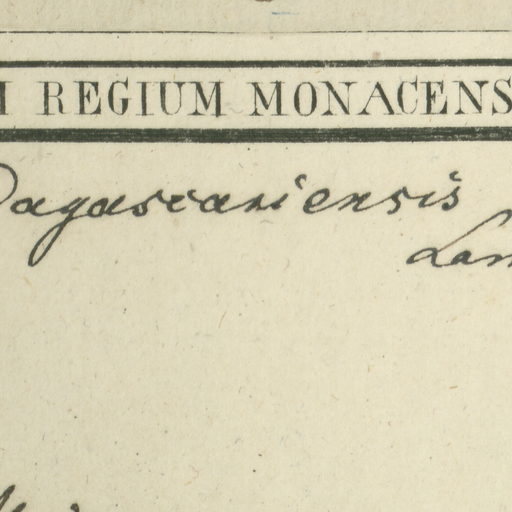 I REGIUM MONACENS
Dagascariensis
Lam